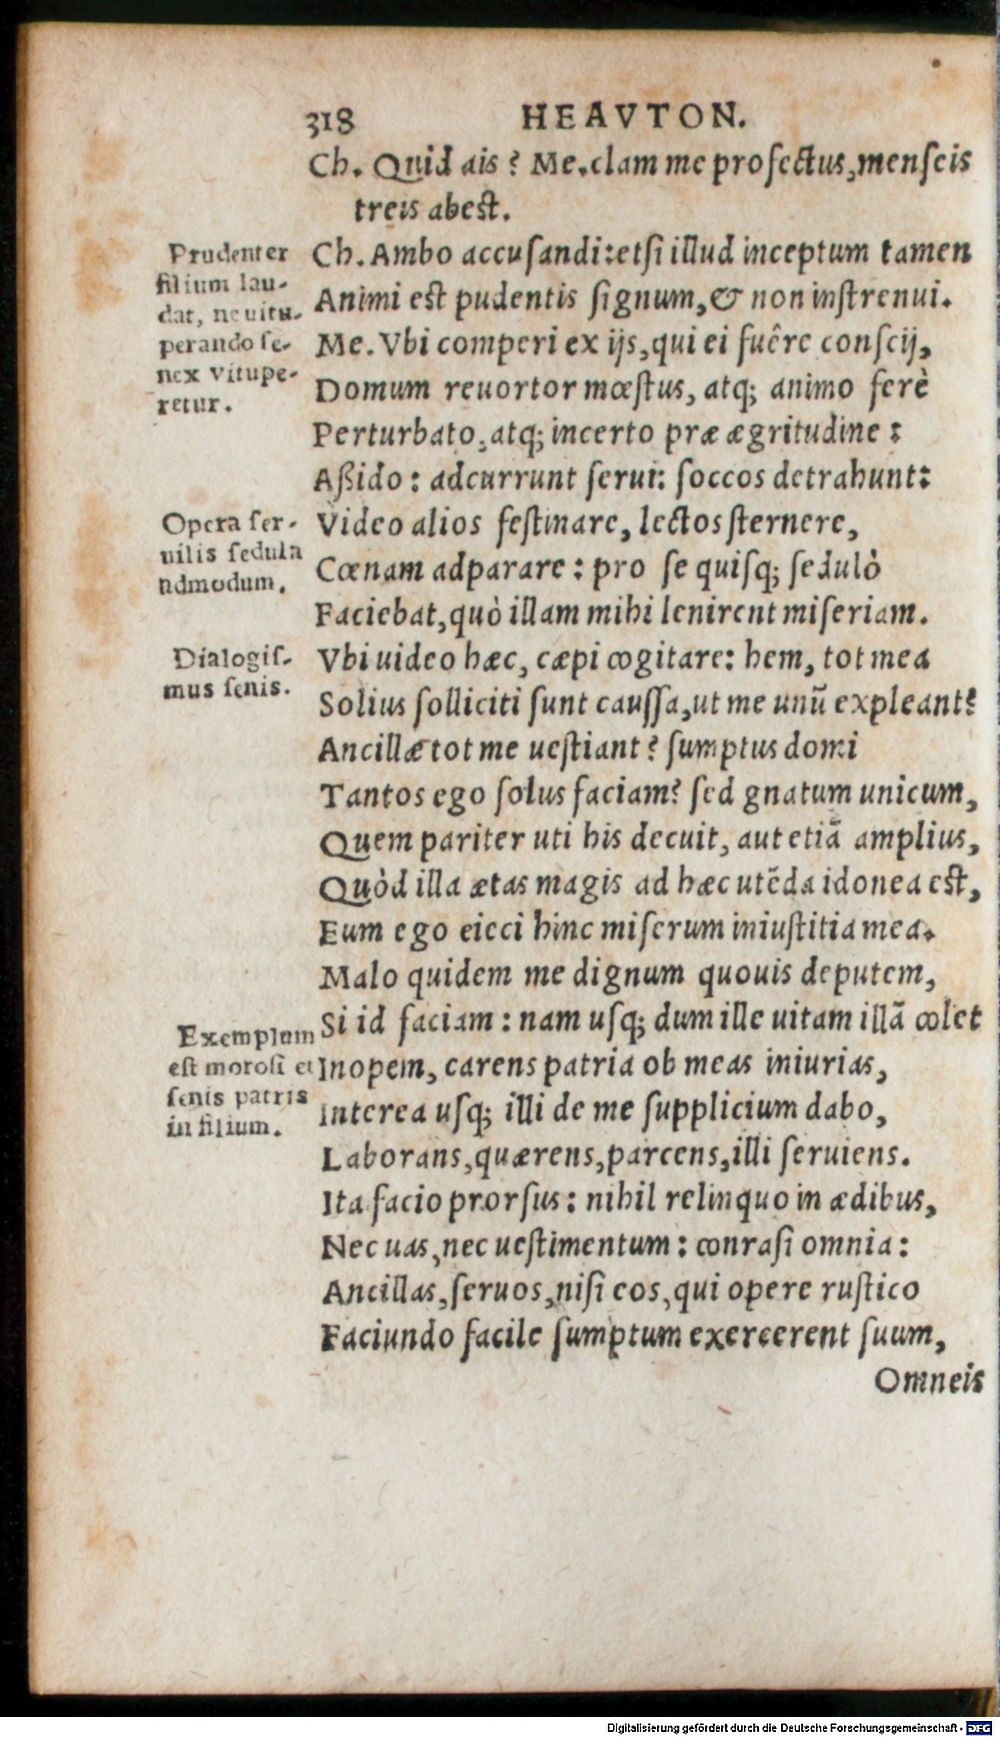 318 HEAVTON.
Ch. Quid ais? Me. clam me profectus, menseis
treis abest.
Prudenter
filium lau-
dat, ne uitu-
perando se-
nex vitupe-
retur.
Ch. Ambo accusandi: etsi illud inceptum tamen
Animi est pudentis signum, & non instrenui.
Me. Vbi comperi ex ijs, qui ei fuêre conscij,
Domum reuortor mœstus, atq; animo ferè
Perturbato, atq; incerto præ ægritudine:
Aßido: adcurrunt serui: soccos detrahunt:
Opera ser-
uilis sedula
admodum.
Video alios festinare, lectos sternere,
Cœnam adparare: pro se quisq; sedulò
Faciebat, quò illam mihi lenirent miseriam.
Dialogis-
mus senis.
Vbi uideo hæc, cæpi cogitare: hem, tot mea
Solius solliciti sunt caussa, ut me unũ expleant?
Ancillæ tot me uestiant? sumptus domi
Tantos ego solus faciam? sed gnatum unicum,
Quem pariter uti his decuit, aut etiã amplius,
Quòd illa ætas magis ad hæc utẽda idonea est,
Eum ego eieci hinc miserum iniustitia mea.
Malo quidem me dignum quouis deputem,
Si id faciam: nam usq; dum ille uitam illã colet
Exemplum
est morosi et
senis patris
in filium.
Inopem, carens patria ob meas iniurias,
Interea usq; illi de me supplicium dabo,
Laborans, quærens, parcens, illi seruiens.
Ita facio prorsus: nihil relinquo in ædibus,
Nec uas, nec uestimentum: conrasi omnia:
Ancillas, seruos, nisi eos, qui opere rustico
Faciundo facile sumptum exercerent suum,
Omneis
Digitalisierung gefördert durch die Deutsche Forschungsgemeinschaft - DFG